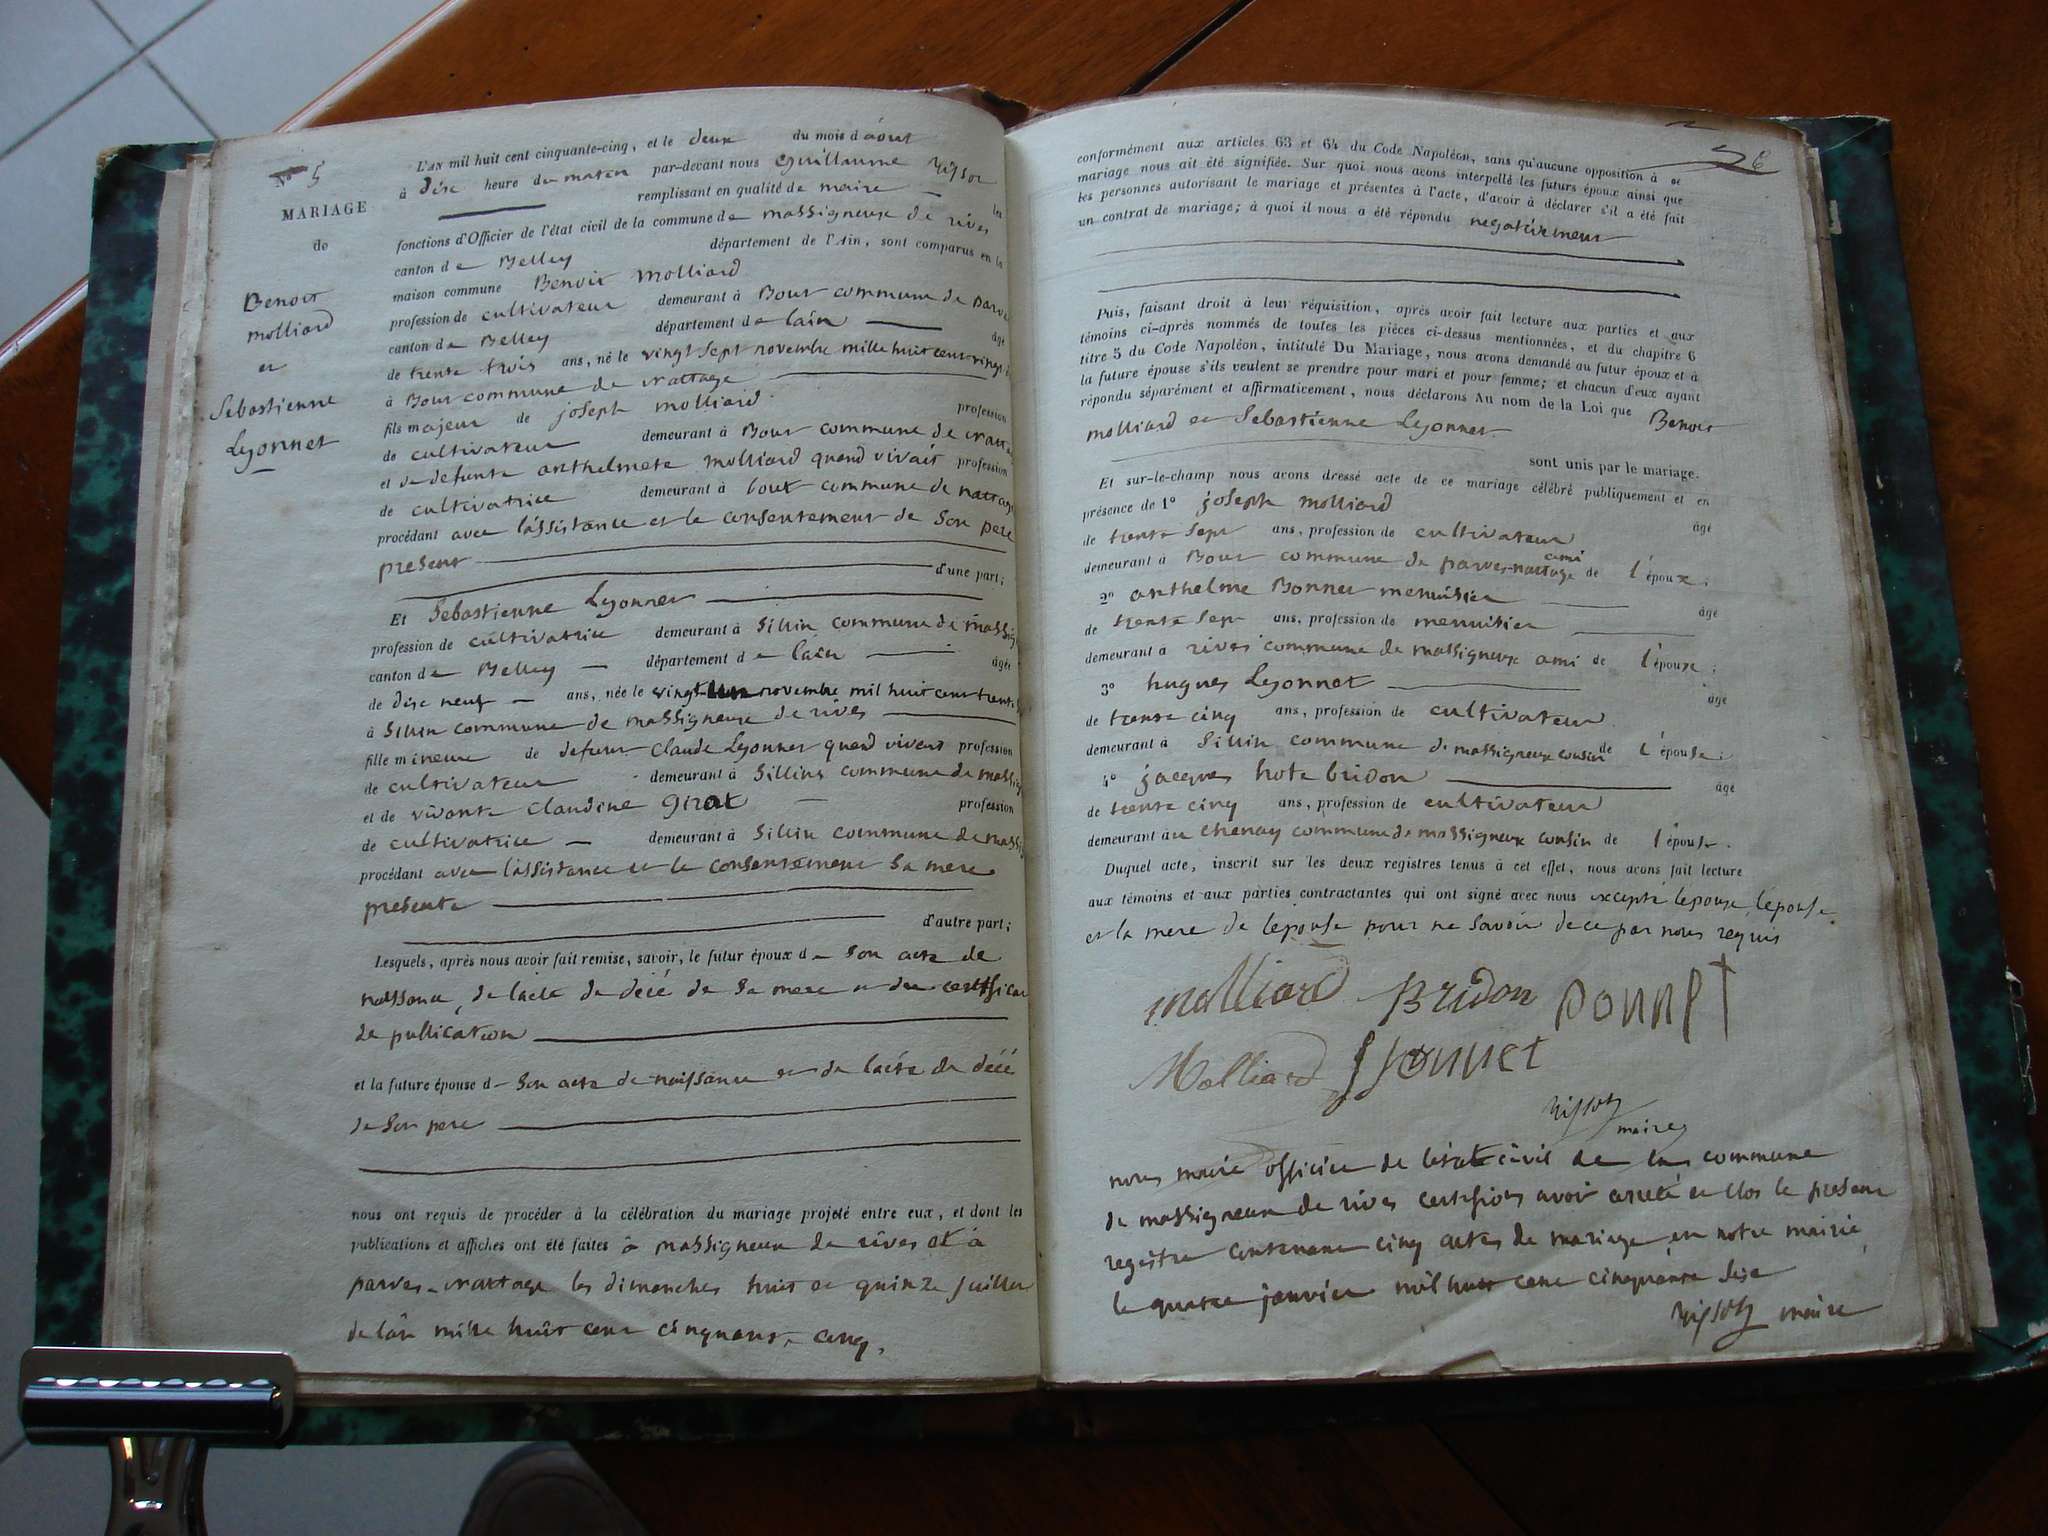 No 5
MARIAGE
de
Benoit
molliard
et
Sébastienne
Lyonnet
L'AN mil huit cent cinquante-cinq, et le deux du mois d'aout
à dix heure du matin par-devant nous Guillaume
remplissant en qualité de maire — les
fonctions d'Officier de l'état civil de la commune de massigneux de rives
canton de Belley département de l'Ain, sont comparus en la
maison commune Benoit molliard
profession de cultivateur demeurant à Bout commune de parve
canton de Belley département de lain — âgé
de trente trois ans, né le vingt sept novembre mille huit cent vingt
à Bout commune de nattage
fils majeur de joseph molliard profession
de cultivateur demeurant à Bout commune de
et de defunte anthelmete molliard quand vivait profession
de cultivatrice demeurant à bout commune de nattage
procédant avec l'assistance et le consentement de Son pere
present
d'une part;
Et Sébastienne Lyonnet
profession de cultivatrice demeurant à Sillin commune de massig
canton de Belley — département de lain — âgée
de dixe neuf — ans, née le vingt novembre mil huit cent trente
à Sillin commune de massigneux de rives
fille mineure de defunt Claude Lyonnet quand vivent profession
de cultivateur demeurant à Sillins commune de massig
et de vivante Claudine Girat — profession
de cultivatrice — demeurant à Sillin commune de massig
procédant avec l'assistance et le consentement Sa mere
presente
d'autre part;
Lesquels, après nous avoir fait remise, savoir, le futur époux de Son acte de
naissance, de lacte de décé de Sa mere et du certificat
de publication
et la future épouse d Son acte de naissance et de lacte de décé
de Son pere
nous ont requis de procéder à la célébration du mariage projeté entre eux, et dont les
publications et affiches ont été faites à massigneux de rives et à
parves-nattage les dimanches huit et quinze juillet
de lan mille huit cent cinquante cinq.
6
conformément aux articles 63 et 64 du Code Napoléon, sans qu'aucune opposition à ce
mariage nous ait été signifiée. Sur quoi nous avons interpellé les futurs époux ainsi que
les personnes autorisant le mariage et présentes à l'acte, d'avoir à déclarer s'il a été fait
un contrat de mariage; à quoi il nous a été répondu negativement
Puis, faisant droit à leur réquisition, après avoir fait lecture aux parties et aux
témoins ci-après nommés de toutes les pièces ci-dessus mentionnées, et du chapitre 6
titre 5 du Code Napoléon, intitulé Du Mariage, nous avons demandé au futur époux et à
la future épouse s'ils veulent se prendre pour mari et pour femme; et chacun d'eux ayant
répondu séparément et affirmativement, nous déclarons Au nom de la Loi que Benoit
molliard et Sébastienne Lyonnet
sont unis par le mariage.
Et sur-le-champ nous avons dressé acte de ce mariage célébré publiquement et en
présence de 1° joseph molliard âgé
de trente Sept ans, profession de cultivateur
demeurant à Bout commune de parves-nattage ami de l'époux;
2° anthelme Bonnet menuisier âgé
de trente Sept ans, profession de menuisier
demeurant à rives commune de massigneux ami de l'époux;
3° hugues Lyonnet âgé
de trente cinq ans, profession de cultivateur
demeurant à Sillin commune de massigneux cousin de l'épouse;
4° jacques hote bridon âgé
de trente cinq ans, profession de cultivateur
demeurant au chenay commune de massigneux cousin de l'épouse.
Duquel acte, inscrit sur les deux registres tenus à cet effet, nous avons fait lecture
aux témoins et aux parties contractantes qui ont signé avec nous excepté lepoux, lepouse
et la mere de lepouse pour ne savoir de ce par nous requis
molliard Bridon Bonnet
Molliard Lyonnet
maire
nous maire officier de létat civil de la commune
de massigneux de rives certifions avoir arreté et clos le present
registre contenant cinq actes de mariage en notre mairie
le quatre janvier mil huit cent cinquante Sixe
maire